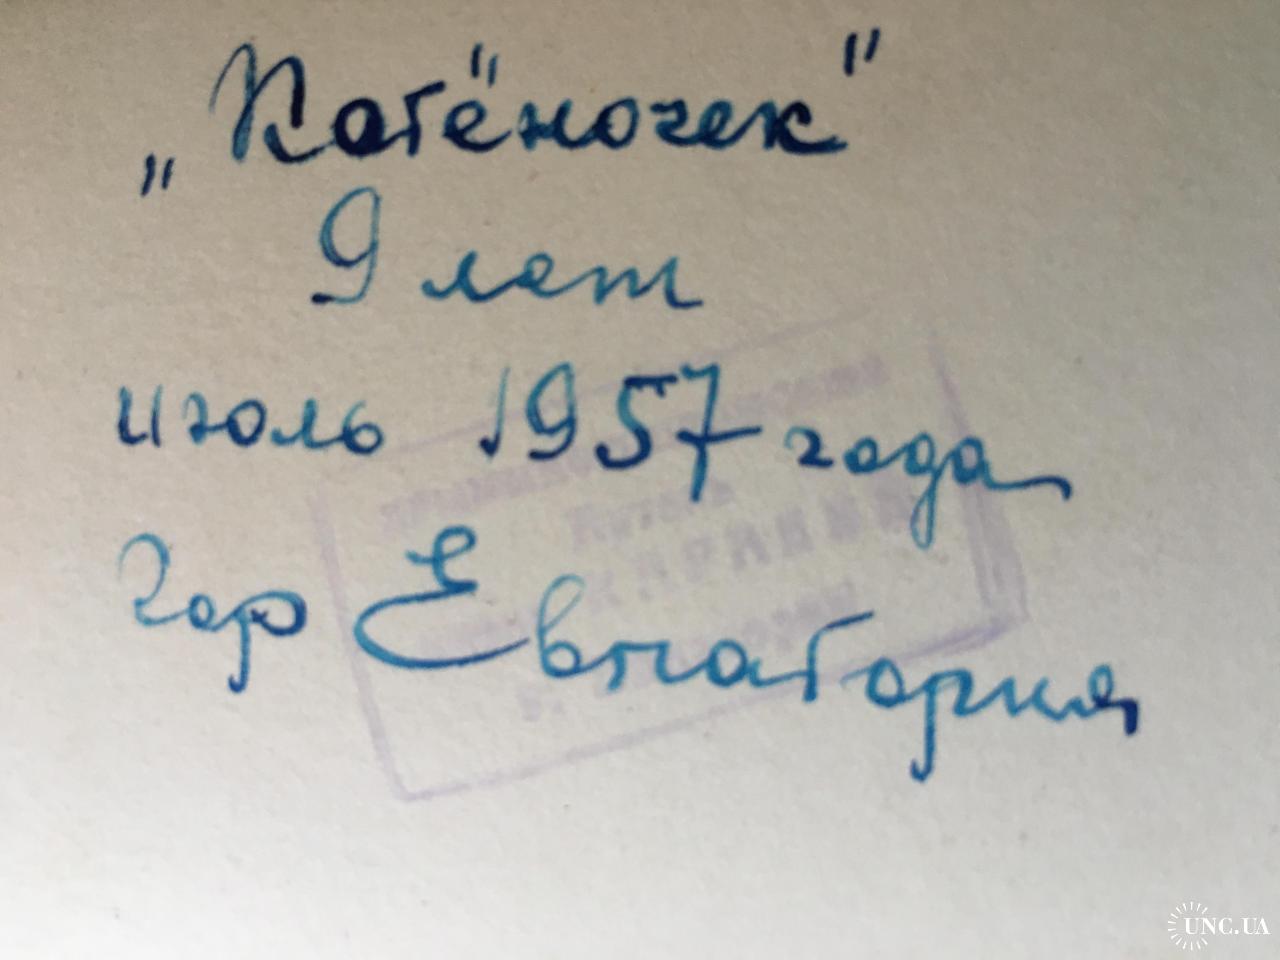 „Котёночек"
9 лет
июль 1957 года
Гор Евпатория
UNC.UA